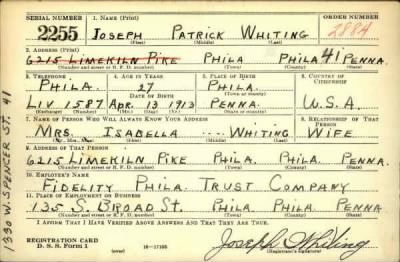 SERIAL NUMBER 1. NAME (Print) ORDER NUMBER
2255 JOSEPH PATRICK WHITING 2884
(First) (Middle) (Last)
2. ADDRESS (Print)
6215 LIMEKILN PIKE PHILA PHILA 41 PENNA.
(Number and street or R. F. D. number) (Town) (County) (State)
3. TELEPHONE 4. AGE IN YEARS 5. PLACE OF BIRTH 6. COUNTRY OF CITIZENSHIP
PHILA. 27 PHILA.
DATE OF BIRTH
LIV 1587 APR. 13 1913 PENNA. U.S.A.
(Exchange) (Number) (Mo.) (Day) (Yr.) (State or country)
7. NAME OF PERSON WHO WILL ALWAYS KNOW YOUR ADDRESS 8. RELATIONSHIP OF THAT PERSON
MRS. ISABELLA ... WHITING WIFE
(Mr., Mrs., Miss) (First) (Middle) (Last)
9. ADDRESS OF THAT PERSON
6215 LIMEKILN PIKE PHILA. PHILA. PENNA.
(Number and street or R. F. D. number) (Town) (County) (State)
10. EMPLOYER'S NAME
FIDELITY PHILA. TRUST COMPANY
11. PLACE OF EMPLOYMENT OR BUSINESS
135 S. BROAD ST. PHILA. PHILA PENNA
(Number and street or R. F. D. number) (Town) (County) (State)
I AFFIRM THAT I HAVE VERIFIED ABOVE ANSWERS AND THAT THEY ARE TRUE.
REGISTRATION CARD
D. S. S. Form 1 (over) 16—17105 Joseph Whiting
(Registrant's signature)
1330 W. SPENCER ST. 41